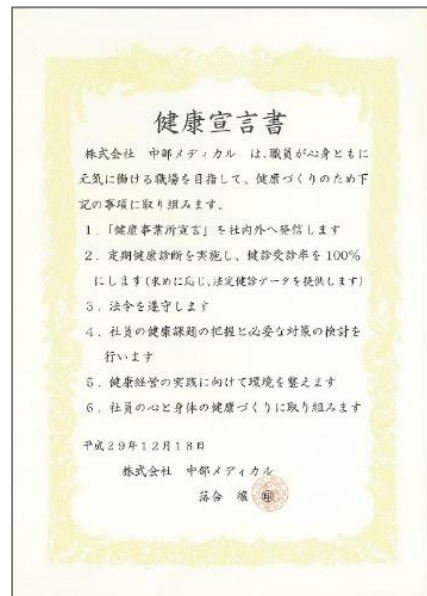 健康宣言書
株式会社 中部メディカル は、職員が心身ともに
元気に働ける職場を目指して、健康づくりのため下
記の事項に取り組みます。
1.「健康事業所宣言」を社内外へ発信します
2. 定期健康診断を実施し、健診受診率を100%
にします(求めに応じ、法定健診データを提供します)
3. 法令を遵守します
4. 社員の健康課題の把握と必要な対策の検討を
行います
5. 健康経営の実践に向けて環境を整えます
6. 社員の心と身体の健康づくりに取り組みます
平成29年12月18日
株式会社 中部メディカル
落合 穣 ㊞